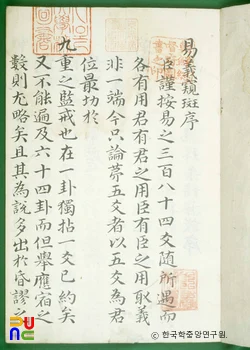 易義窺斑序
臣謹按易之三百八十四爻隨所遇而
各有用君有君之用臣有臣之用取義
非一端今只論苐五爻者以五爻為君
位最切於
九重之監戒也在一卦獨拈一爻已約矣
又不能遍及六十四卦而但舉應宿之
數則尤略矣且其為說多出於昏謬之
© 한국학중앙연구원